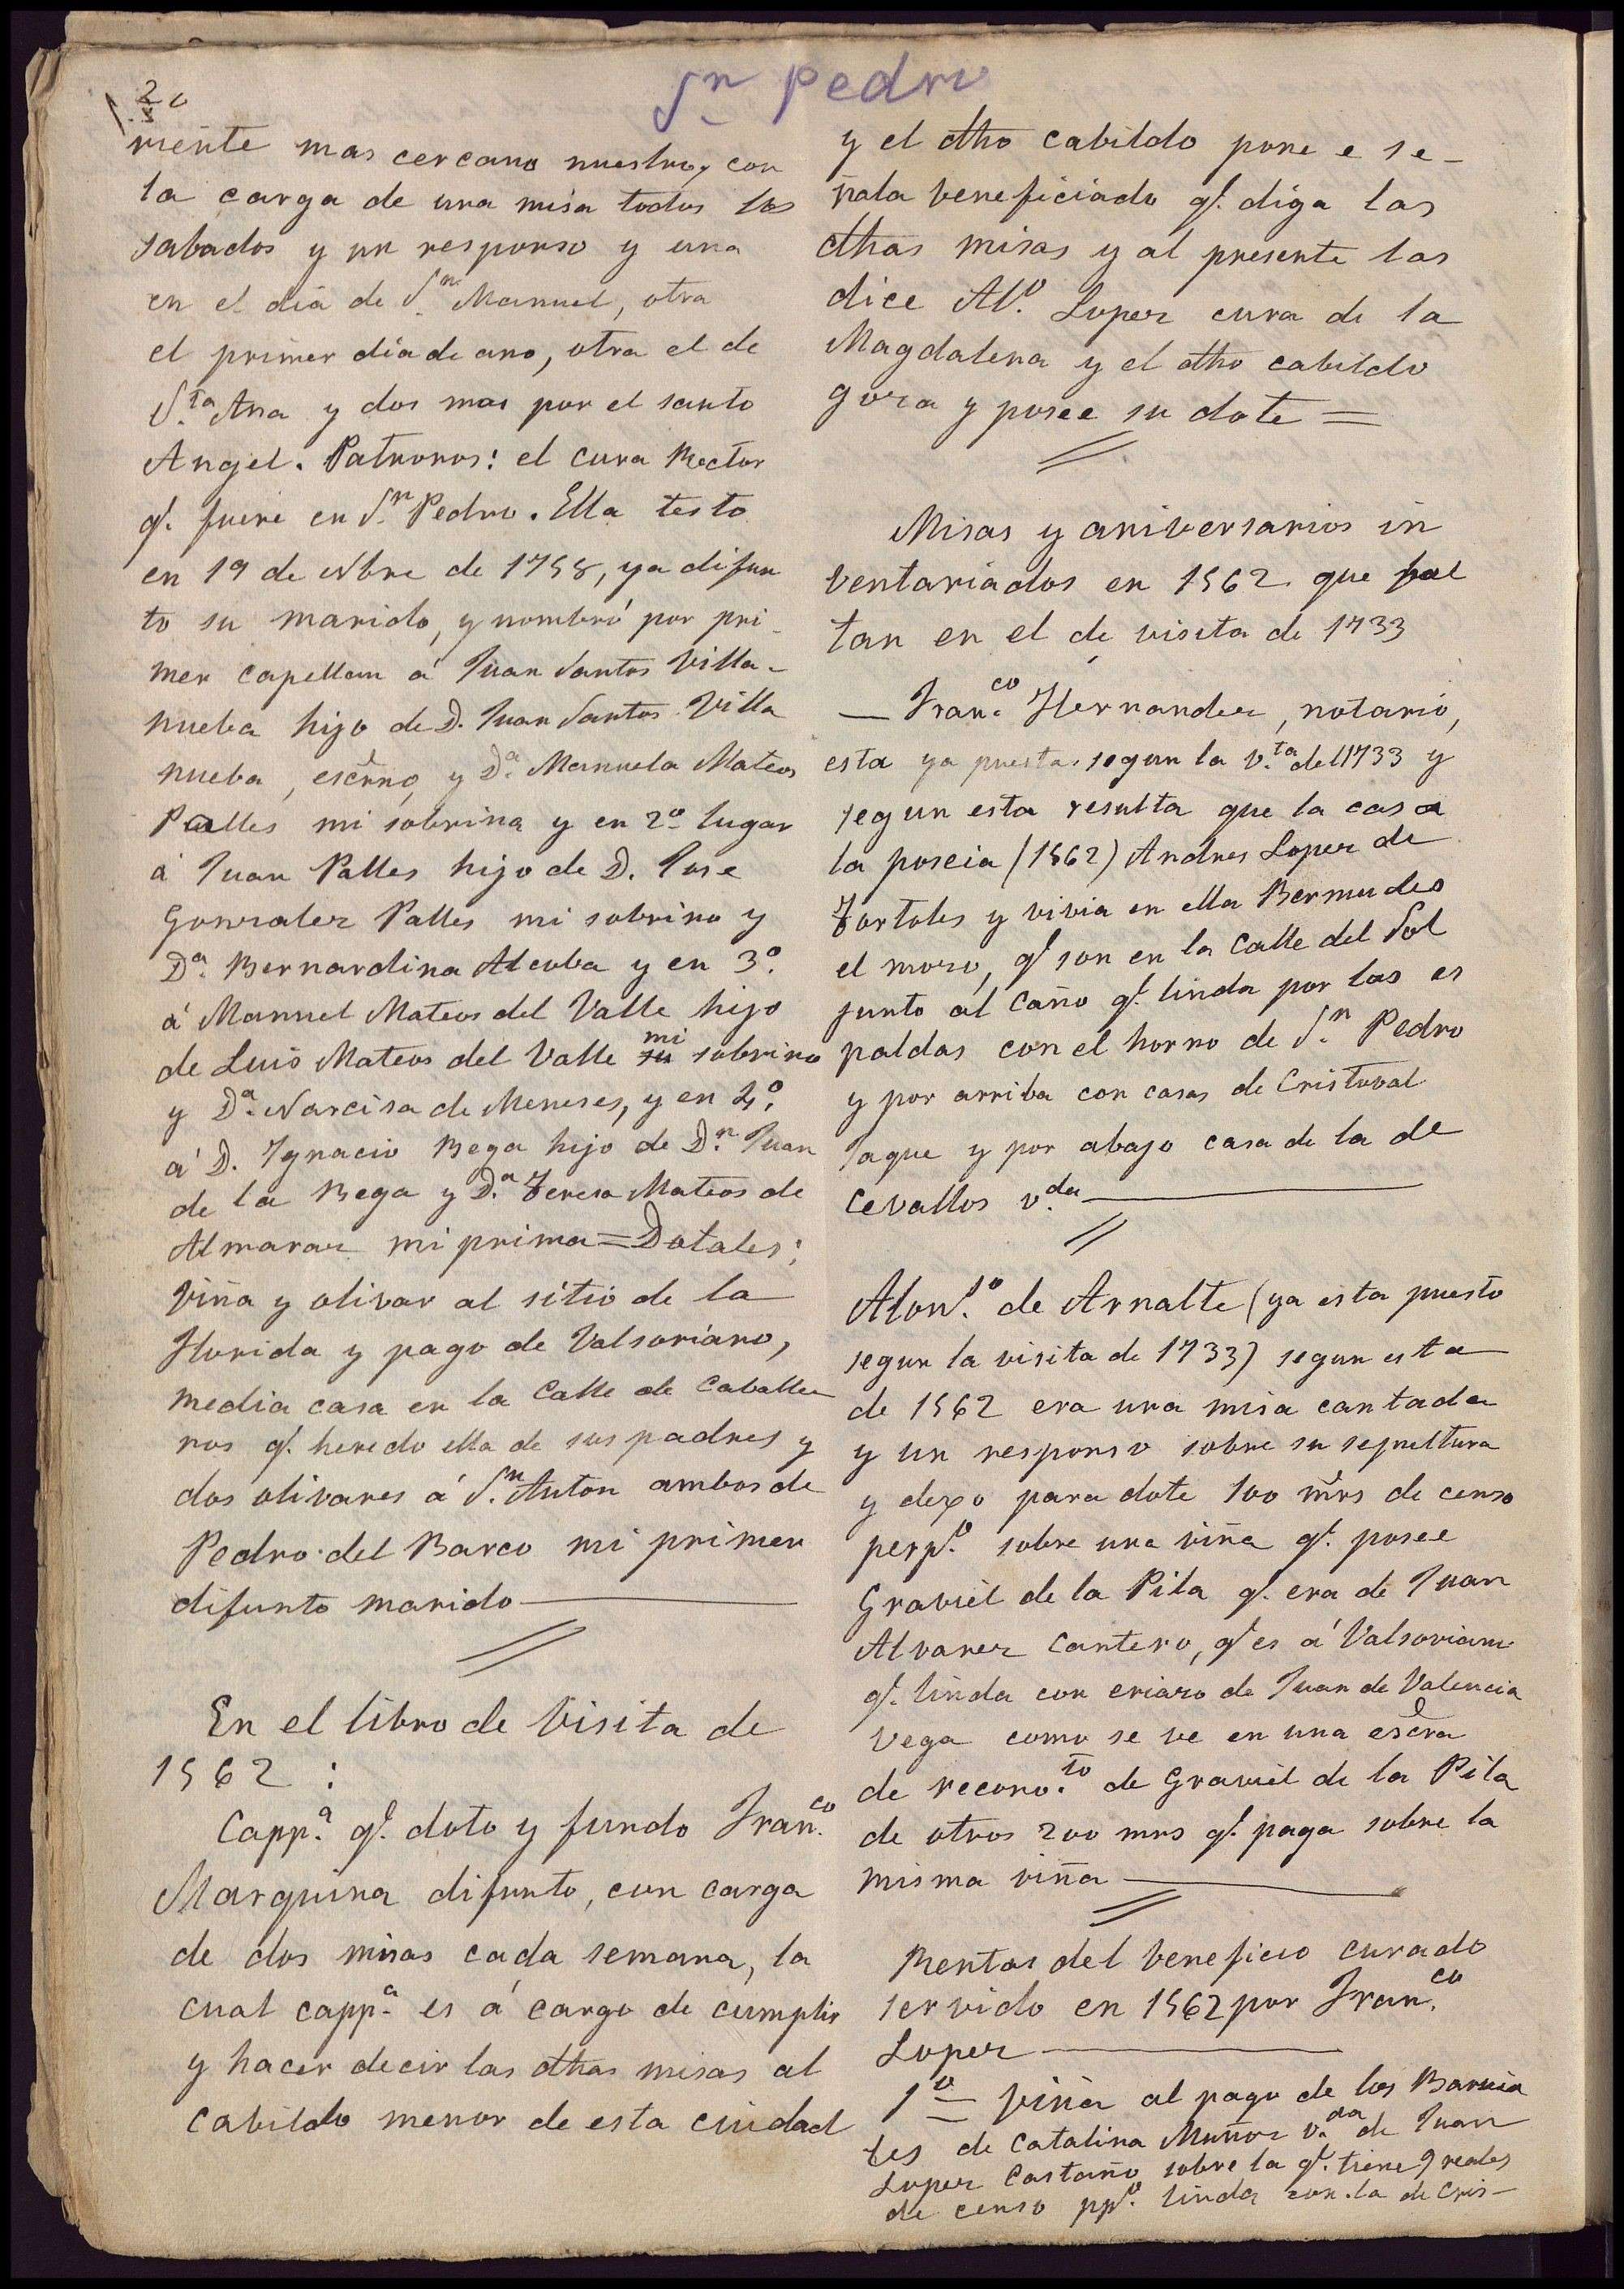 Sn Pedro
riente mas cercano nuestro, con
la carga de una misa todos los
sabados y un responso y una
en el dia de Sn Manuel, otra
el primer dia de ano, otra el de
Sta Ana y dos mas por el santo
Angel. Patronos: el cura Rector
q. fuere en Sn Pedro. Ella testo
en 19 de Nbre de 1758, ya difun
to su marido, y nombró por pri-
mer capellan á Juan Santos Villa-
nueba hijo de D. Juan Santos Villa
nueba, escrno, y Da. Manuela Mateos
Palles mi sobrina y en 2o lugar
á Juan Palles hijo de D. Jose
Gonzalez Palles mi sobrino y
Da. Bernardina Alcoba y en 3o.
á Manuel Mateos del Valle hijo
de Luis Mateos del Valle mi sobrino
y Da. Narcisa de Meneses, y en 4o.
á D. Ygnacio Bega hijo de Dn. Juan
de la Bega y Da. Teresa Mateos de
Almaraz mi prima = Dotales:
viña y olivar al sitio de la
Florida y pago de Valsoriano,
media casa en la Calle de Caballe
ros q. heredo ella de sus padres y
dos olivares á Sn. Anton ambos de
Pedro del Barco mi primer
difunto marido
En el libro de Visita de
1562 :
Capp.a q. doto y fundo Fran.co
Marquina difunto, con carga
de dos misas cada semana, la
cual capp.a es á cargo de cumplir
y hacer decir las dthas misas al
Cabildo menor de esta ciudad
y el dtho cabildo pone e se-
ñala beneficiado q. diga las
dthas misas y al presente las
dice Alo. Lopez cura de la
Magdalena y el dtho cabildo
goza y posee su dote =
Misas y aniversarios in
ventariados en 1562 que fal
tan en el de visita de 1733
— Fran.co Hernandez, notario,
esta ya puesta segun la v.ta del 1733 y
segun esta resulta que la casa
la poseia (1562) Andres Lopez de
Tortoles y vivia en ella Bermudes
el mozo, q. son en la Calle del Sol
junto al Caño q. linda por las es
paldas con el horno de Sn. Pedro
y por arriba con casas de Cristoval
Jaque y por abajo casa de la de
Cevallos v.da
Alon.so de Arnalte (ya esta puesto
segun la visita de 1733) segun esta
de 1562 era una misa cantada
y un responso sobre su sepultura
y dexo para dote 100 mrs de censo
perp.o sobre una viña q. posee
Graviel de la Pila q. era de Juan
Alvarez Cantero, q. es á Valsoriano
q. linda con eriazo de Juan de Valencia
Vega como se ve en una escra
de recono.to de Graviel de la Pila
de otros 200 mrs q. paga sobre la
misma viña
Rentas del beneficio curado
servido en 1562 por Fran.co
Lopez
1o = viña al pago de los Barria
les de Catalina Muñoz v.da de Juan
Lopez Castaño sobre la q. tiene 9 reales
de censo pp.o linda con la de Cris-